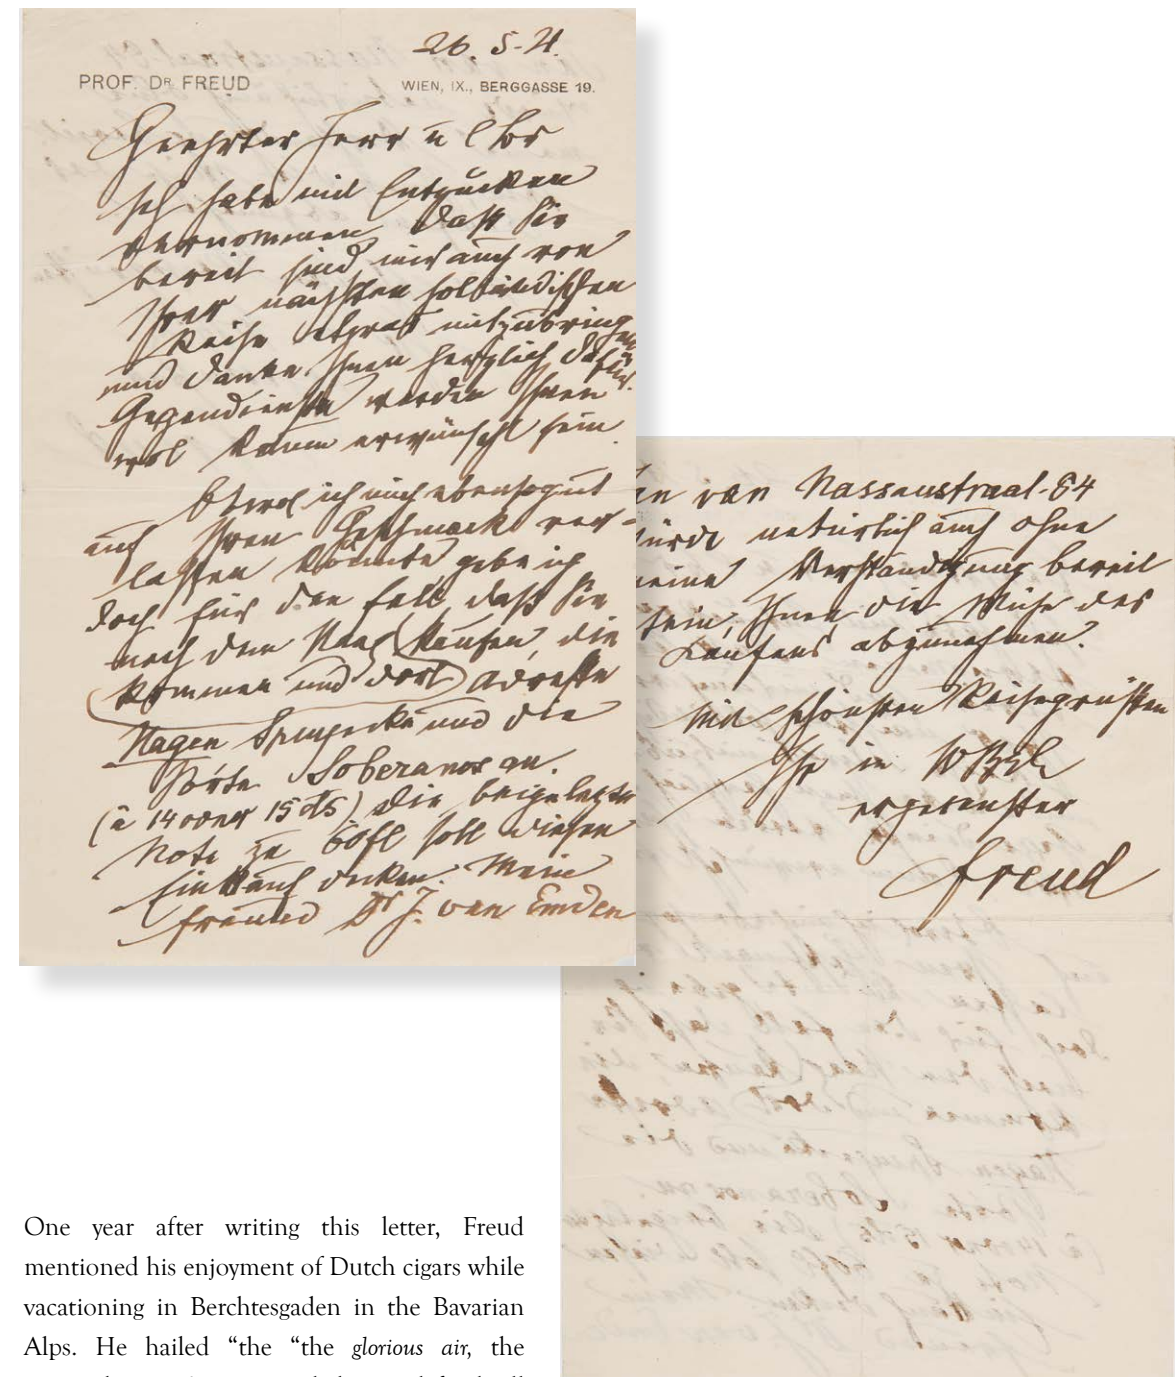 26. 5. 21.
PROF. DR FREUD WIEN, IX., BERGGASSE 19.
Geehrter Herr u l Br
Ich habe mit Entzücken
vernommen daß Sie
bereit sind mir auch von
Ihrer nächsten holländischen
Reise etwas mitzubringen
und danke Ihnen herzlich dafür.
Gegendienste werden Ihnen
wol kaum erwünscht sein.
Obwol ich mich ebensogut
auf Ihren Geschmack ver-
lassen könnte gebe ich
doch für den Fall, daß Sie
nach dem Haag kommen und dort
kaufen, die Adresse
Hagen und die
Sorte Soberanos an.
(à 14 oder 15 cts) Die beigelegte
Note zu 60 fl soll diesen
Einkauf decken. Mein
Freund Dr J. van Emden
en van Nassaustraat 64
würde natürlich auch ohne
meine Verständigung bereit
sein, Ihnen die Mühe des
Kaufens abzunehmen.
Mit schönsten Reisegrüßen
Ihr in
ergebenster
Freud
One year after writing this letter, Freud
mentioned his enjoyment of Dutch cigars while
vacationing in Berchtesgaden in the Bavarian
Alps. He hailed “the “the glorious air, the